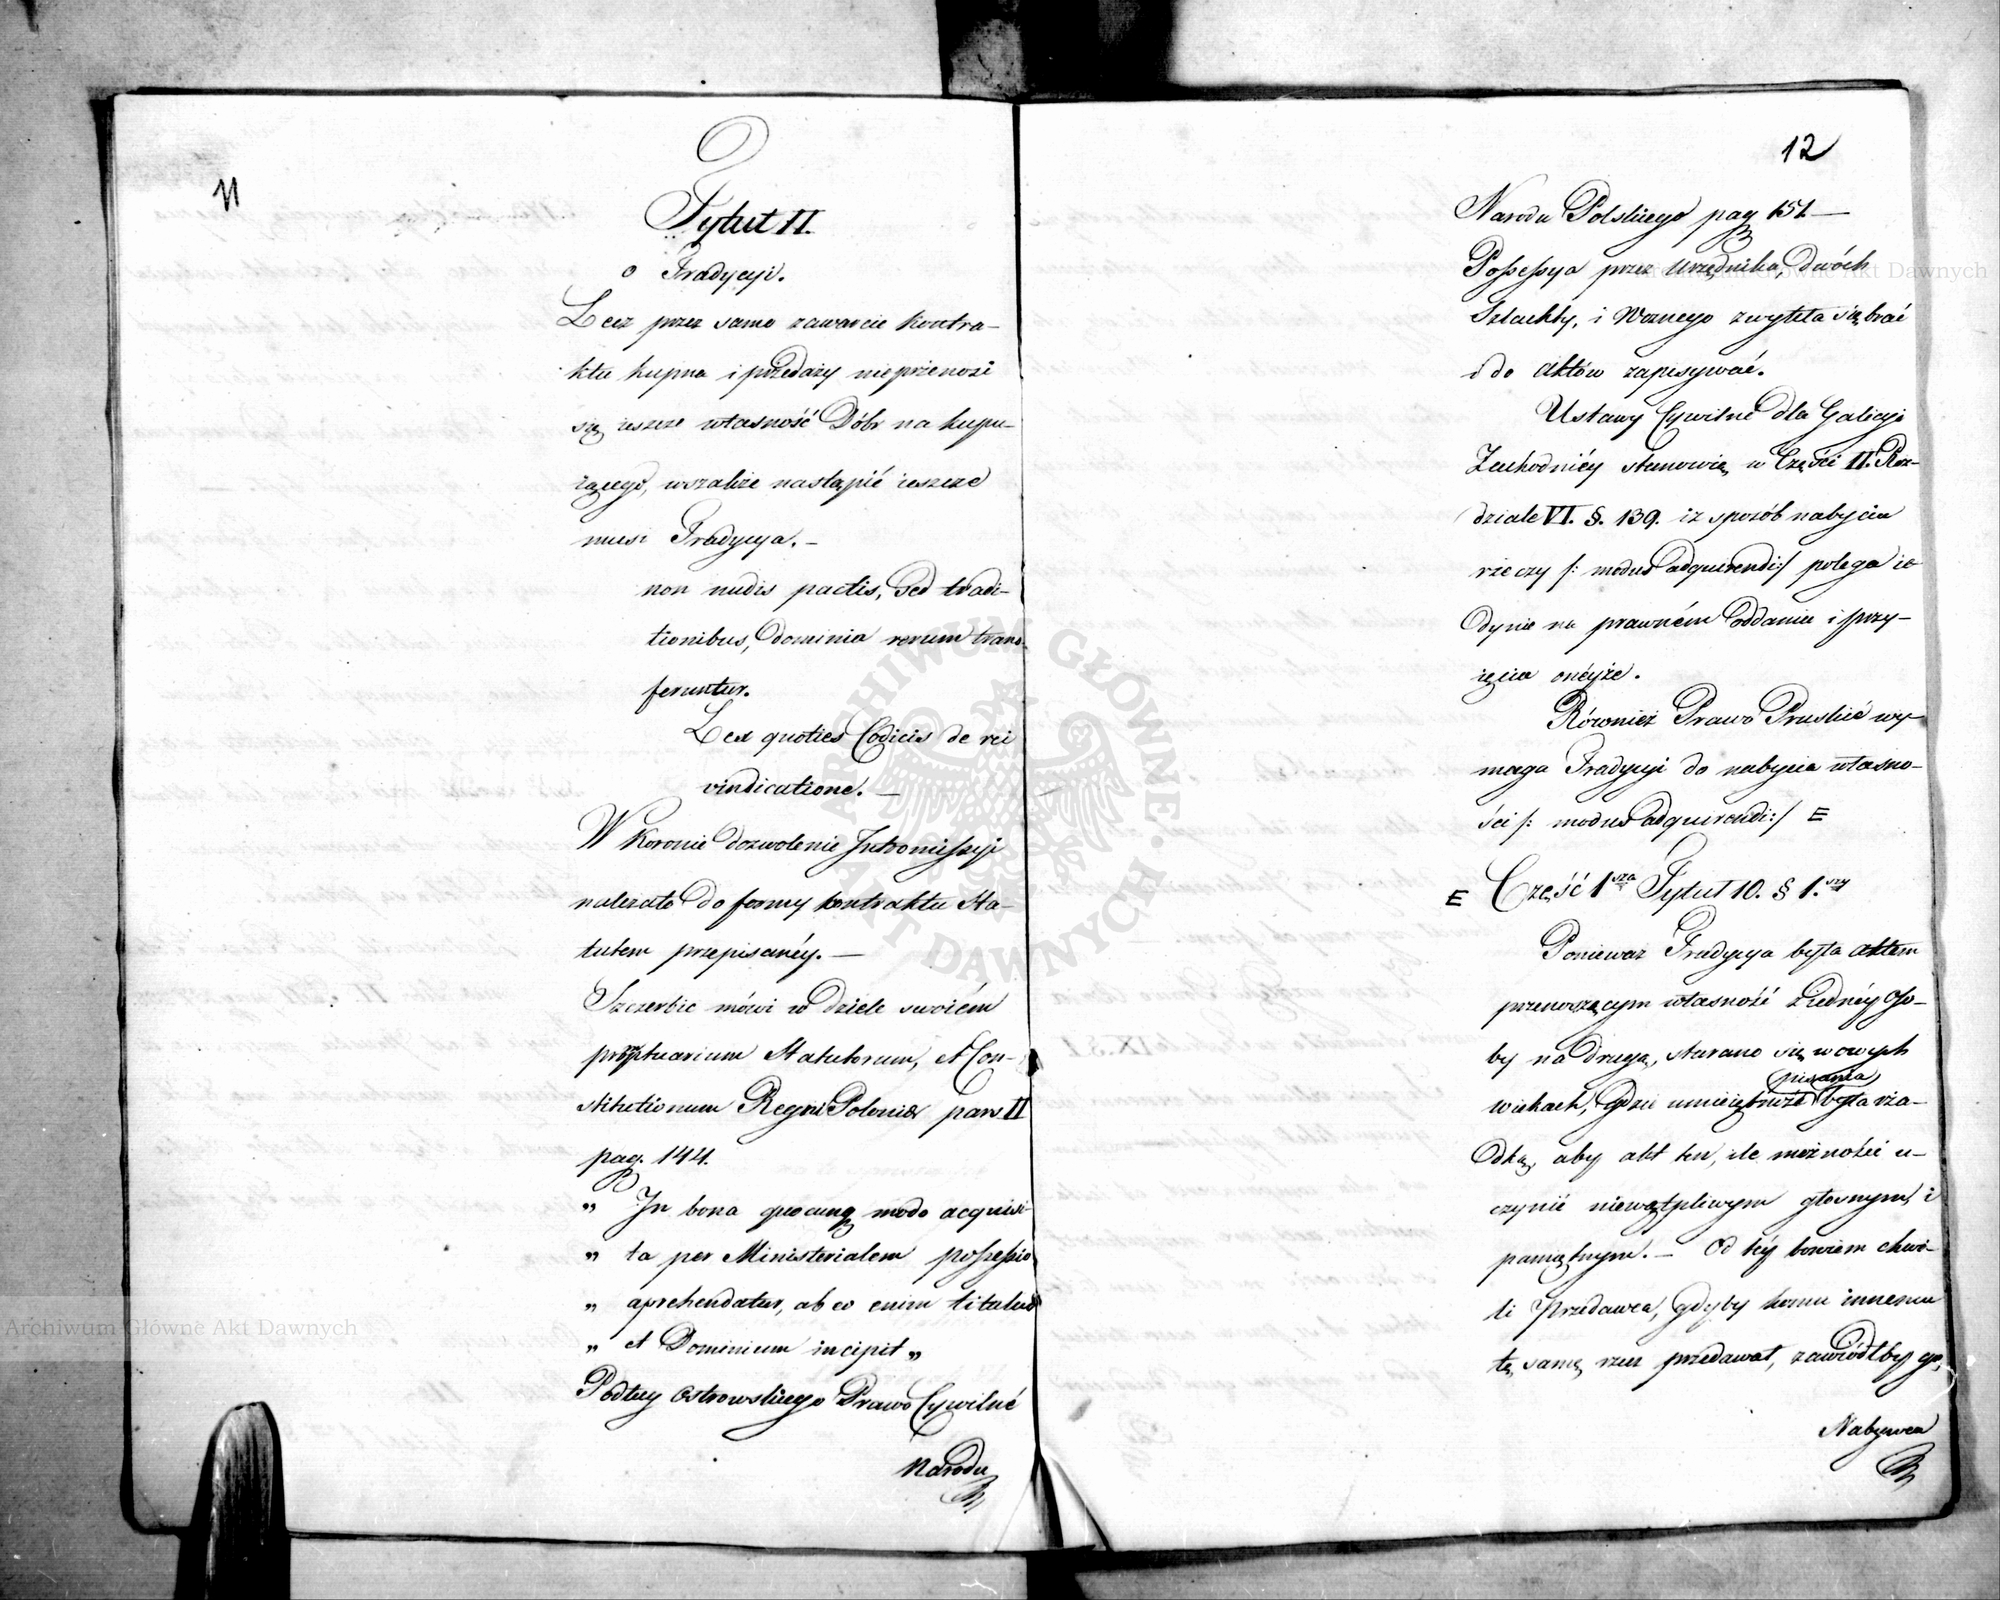 11
Tytuł II.
o Tradycyi.
Lecz przez samo zawarcie kontra-
ktu kupna i przedaży nieprzenosi
się ieszcze własność Dóbr na kupu-
iącego, wszakże nastąpić ieszcze
musi Tradycya. –
non nudis pactis, sed tradi-
tionibus, dominia rerum trans-
feruntur.
Lex quoties Codicis de rei
vindicatione. –
W Koronie dozwolenie Intromissyi
należało do formy kontraktu Sta-
tutem przepisanéy. –
Szczerbic mówi w dziele swoiém
promptuarium Statutorum, et Con-
stitutionum Regni Poloniæ pars II
pag. 144.
„ In bona quocunq modo acquisi-
„ ta per Ministerialem possessio
„ aprehendatur, ab eo enim titulus
„ et Dominium incipit „
Podług Ostrowskiego Prawo Cywilné
Narodu
12
Narodu Polskiego pag 151. –
Possessya przez Urzędnika, dwóch
Szlachty, i Woznego zwykła się brać
i do Aktów zapisywać.
Ustawy Cywilné dla Galicyi
Zachodniéy stanowią w Części II. Roz-
dziale VI. §. 139. iż sposób nabycia
rzeczy /: modus adquirendi :/ polega ie
dynie na prawném oddaniu i przy-
ięciu onéyże.
Również Prawo Pruskié wy-
maga Tradycyi do nabycia własno-
ści /: modus adquirendi :/ E
E Część 1sza Tytuł 10. § 1.szy
Ponieważ Tradycya była aktem
przenoszącym własność z iednéy oso-
by na drugą, starano się w owych
pisania
wiekach, gdzie umieiętność była rza-
dką, aby akt ten, ile możności u-
czynić niewątpliwym głosnym, i
pamiętnym. – Od téy bowiem chwi-
li Przedawca, gdyby komu innemu
tę samę rzecz przedawał, zawiódłby go,
Nabywca
ARCHIWUM GŁÓWNE AKT DAWNYCH
Archiwum Główne Akt Dawnych
Archiwum Główne Akt Dawnych